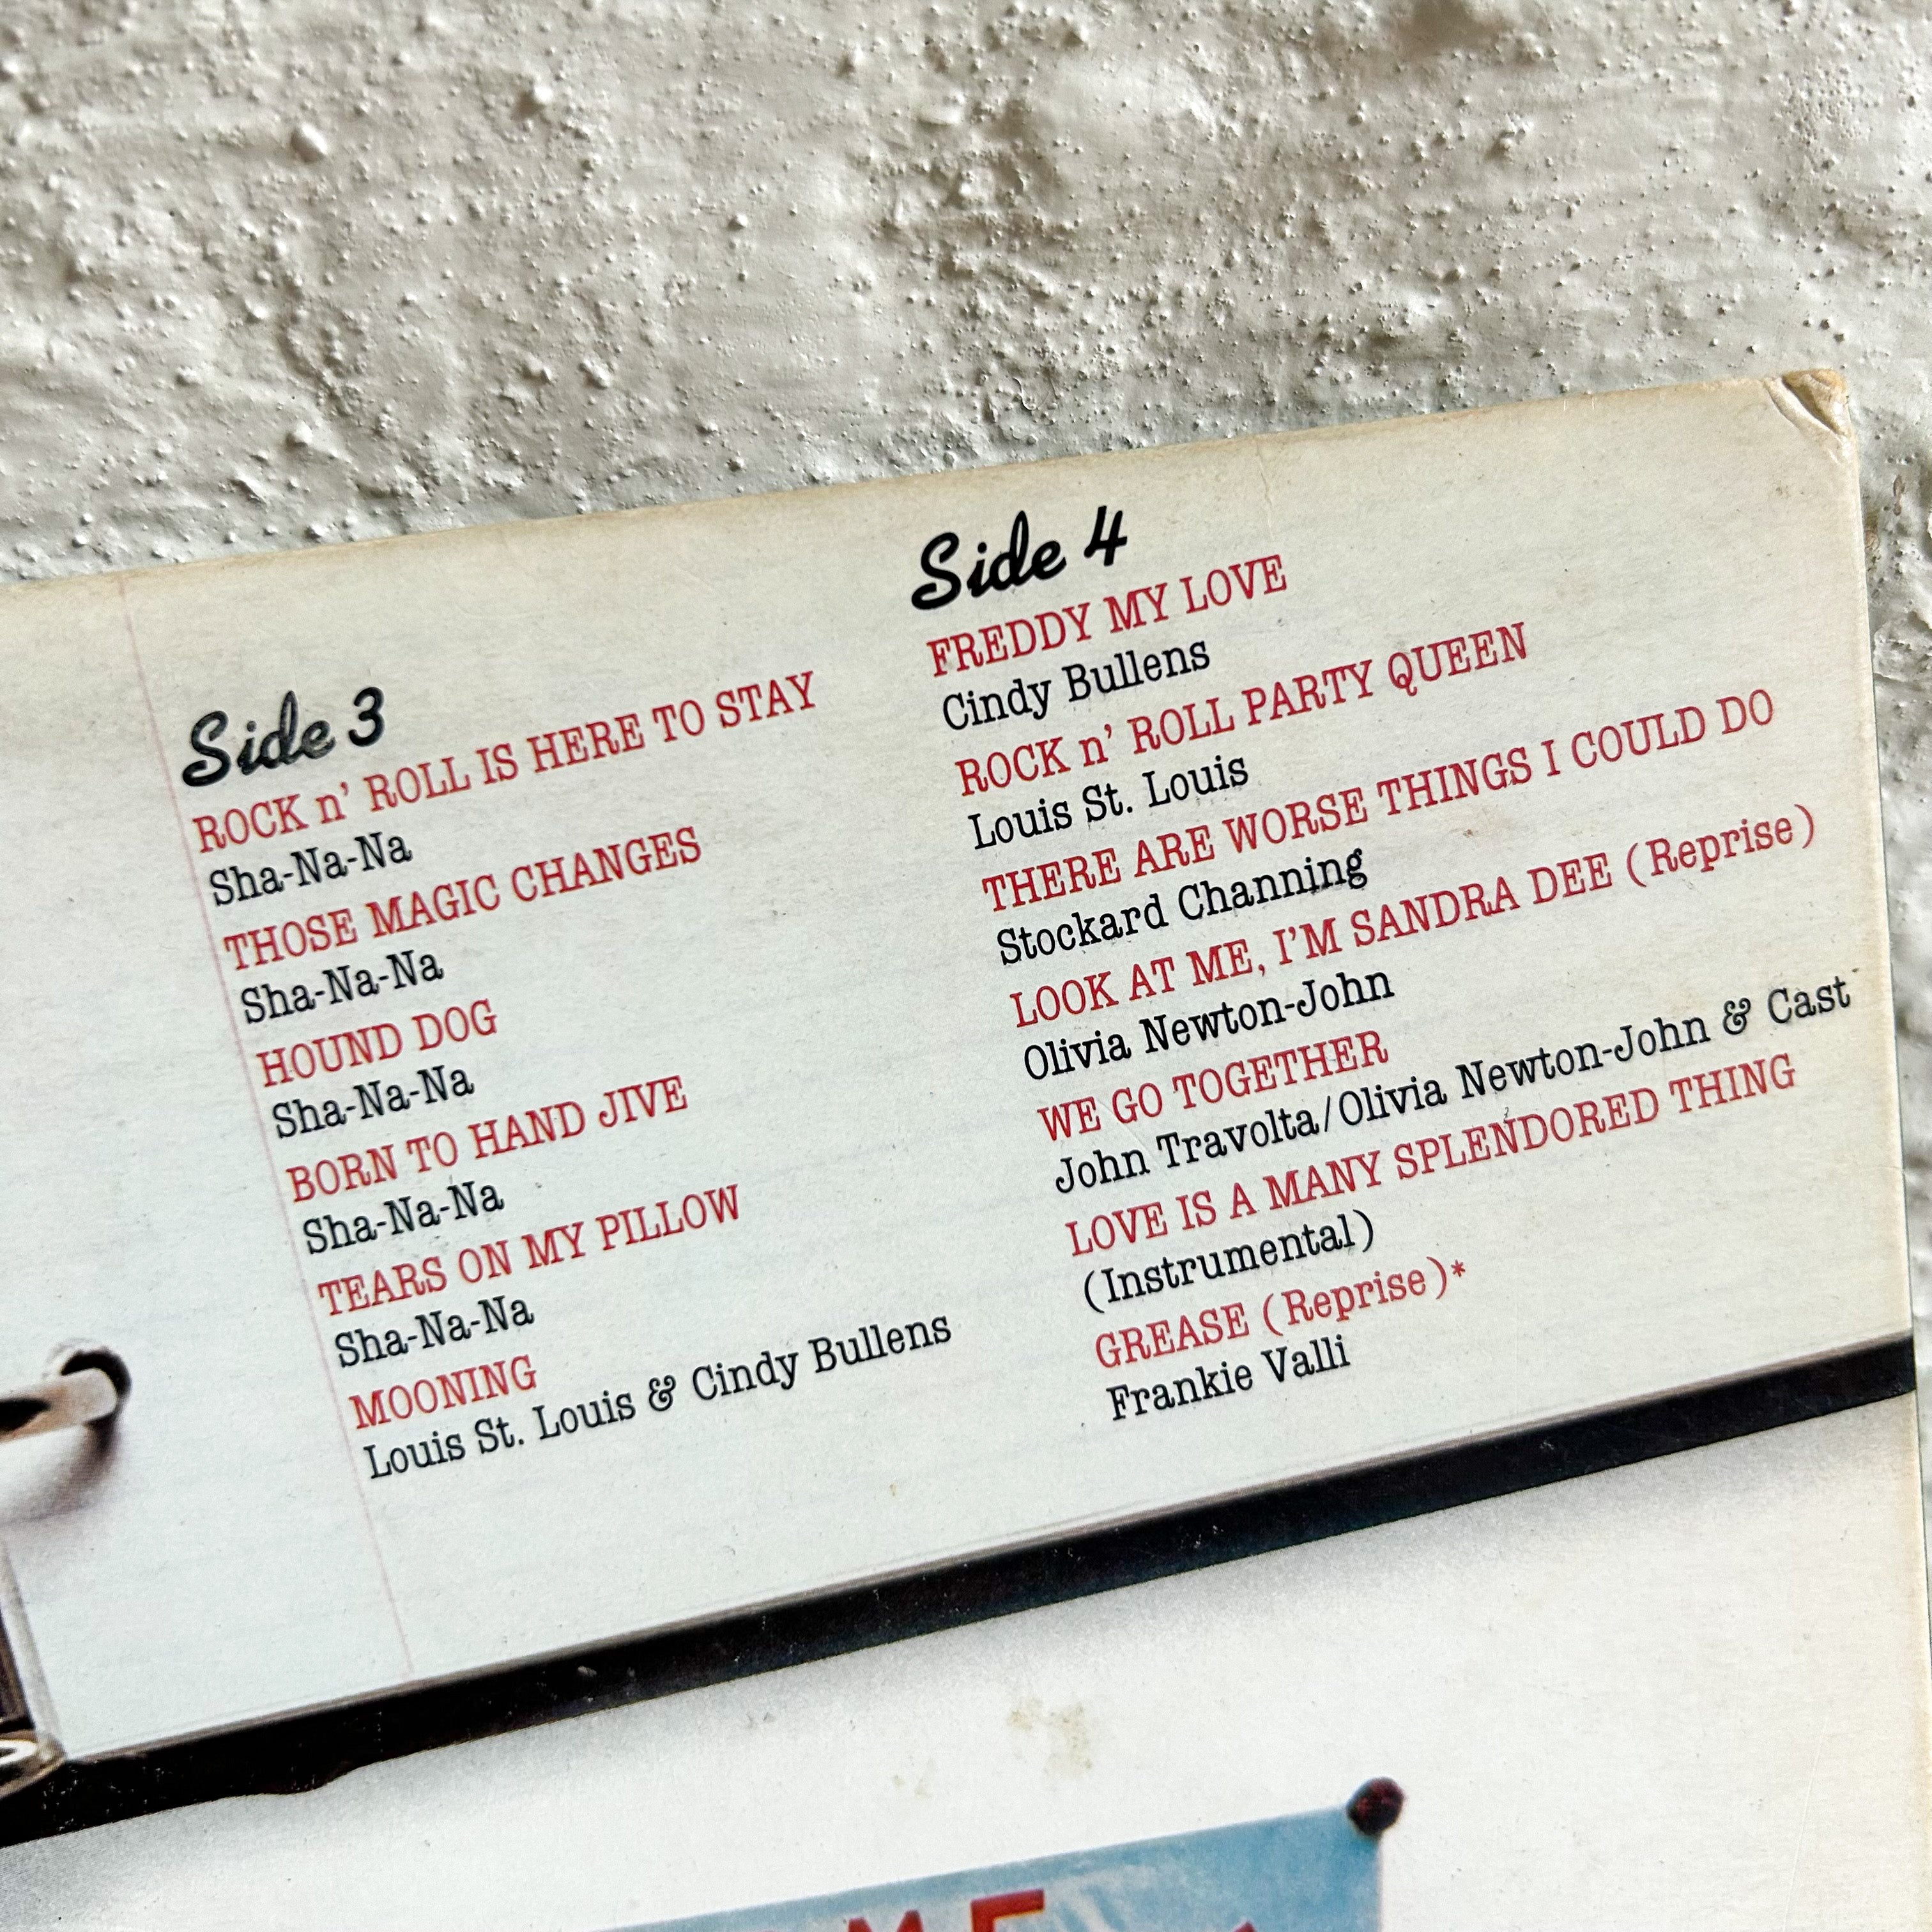 Side 3
ROCK n' ROLL IS HERE TO STAY
Sha-Na-Na
THOSE MAGIC CHANGES
Sha-Na-Na
HOUND DOG
Sha-Na-Na
BORN TO HAND JIVE
Sha-Na-Na
TEARS ON MY PILLOW
Sha-Na-Na
MOONING
Louis St. Louis & Cindy Bullens
Side 4
FREDDY MY LOVE
Cindy Bullens
ROCK n' ROLL PARTY QUEEN
Louis St. Louis
THERE ARE WORSE THINGS I COULD DO
Stockard Channing
LOOK AT ME, I'M SANDRA DEE (Reprise)
Olivia Newton-John
WE GO TOGETHER
John Travolta/Olivia Newton-John & Cast
LOVE IS A MANY SPLENDORED THING
(Instrumental)
GREASE (Reprise)*
Frankie Valli